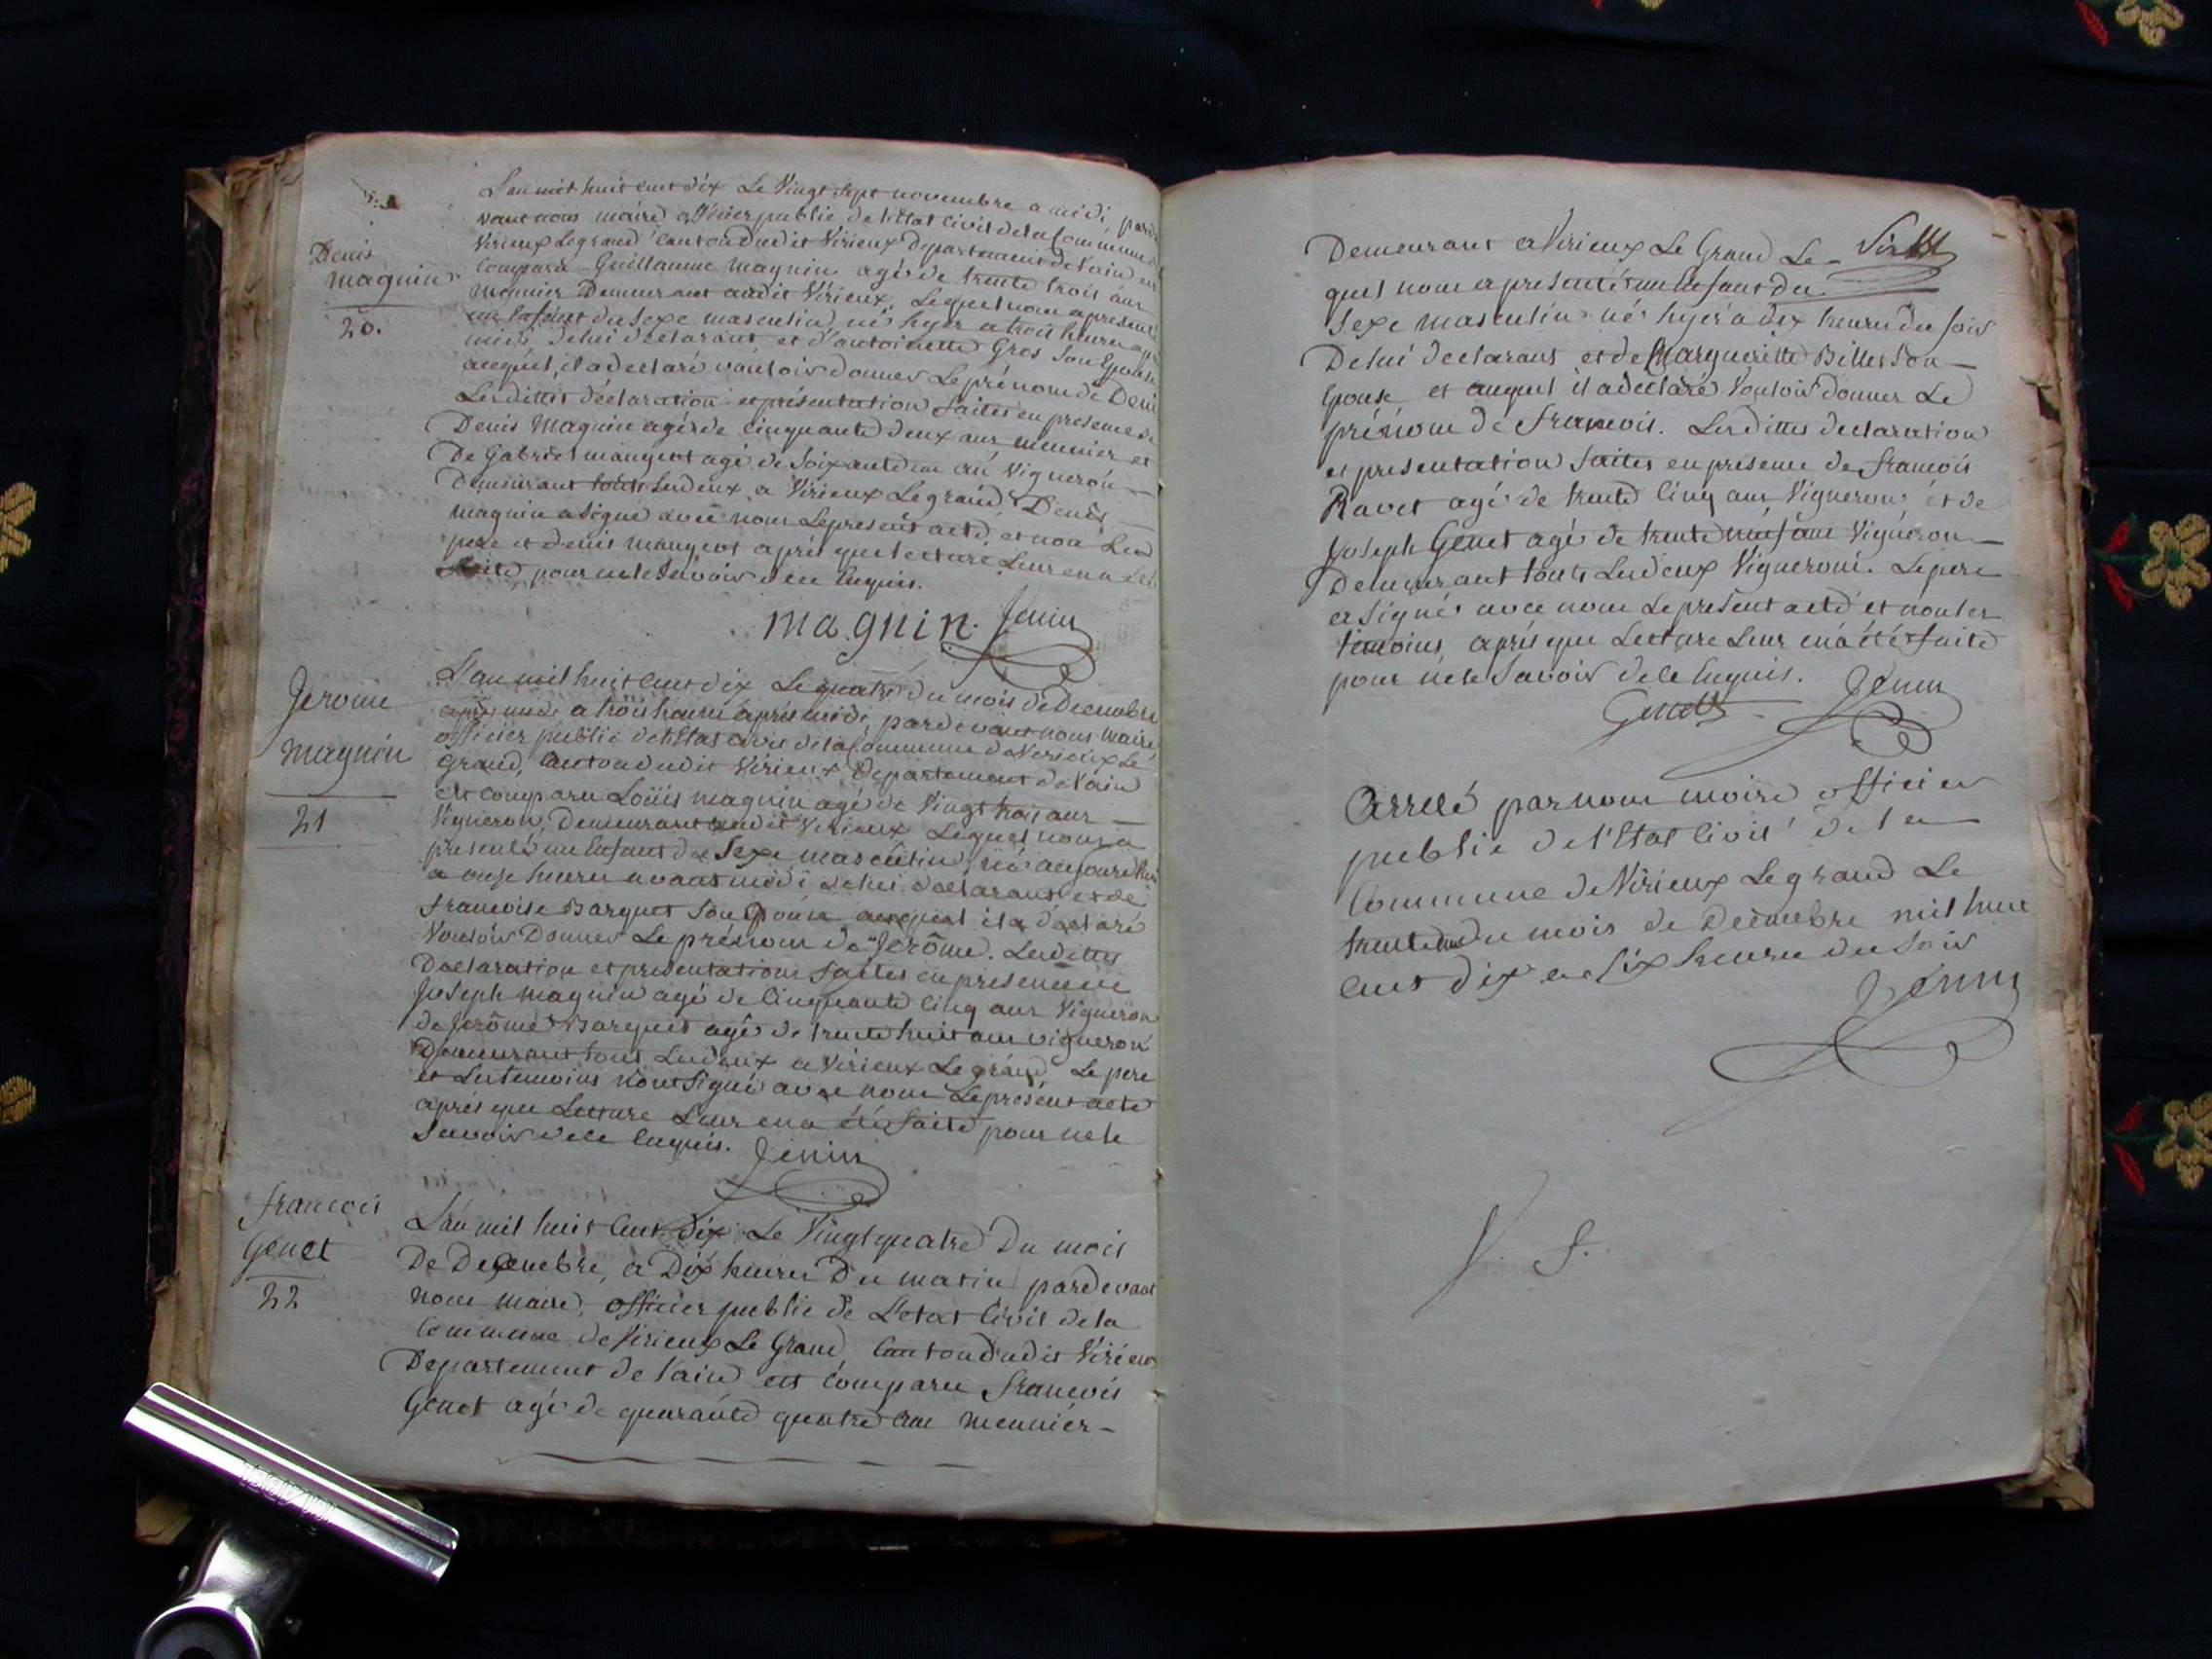 Denis
magnin
20.
L'an mil huit cent dix Le Vingt sept novembre a midi, parde
vant nous maire officier public de l'Etat civil de la Commune de
Virieux Legrand Canton dudit Virieux Departement de l'ain est
Comparu Guillaume Magnin agé de trente trois ans
Meunier Demeurant audit Virieux, Lequel nous a presenté
un Enfant du Sexe masculin, né hyer a trois heures apres
midi, de lui declarant et d'antoinette Gros Son Epouse
auquel, il a declaré vouloir donner Le prénom de Denis
Les dittes déclaration et présentation faites en presence de
Denis Magnin agé de Cinquante deux ans, meunier et
De Gabriel mangeot agé de Soixante un an Vigneron
Demeurant touts Les deux a Virieux Legrand, Denis
magnin a Signé avec nous Le present acte, et non Le
pere et Denis mangeot après que lecture Leur en a été
faite pour ne le Savoir de ce Enquis.
magnin. Jenin
Jerome
Magnin
21
L'an mil huit cent dix Le quatre du mois de Decembre
après midi a trois heures après midi, pardevant nous Maire
officier public de l'Etat civil de la Commune de Virieux Le
grand, Canton dudit Virieux Departement de l'ain
est Comparu Louis magnin agé de Vingt trois ans
Vigneron, Demeurant audit Virieux Lequel nous a
presenté un Enfant de Sexe masculin, né aujourd'hui
a onze heures avant midi de lui declarant et de
Francoise Barquet Son Epouse auquel il a déclaré
Vouloir Donner Le prénom de Jerôme. Les dittes
Declaration et presentation faites en presence de
Joseph Magnin agé de Cinquante Cinq ans Vigneron
de Jerôme Barquet agé de trente huit ans vigneron
Demeurant tous Les deux a Virieux Le grand Le pere
et Les temoins n'ont Signé avec nous Le présent acte
après que Lecture Leur en a été faite pour ne le
Savoir de ce Enquis. Jenin
francois
Genet
22
L'an mil huit Cent dix Le Vingt quatre Du mois
De Decembre, a Dix heures Du matin pardevant
nous Maire, officier public de L'etat Civil de la
Commune de Virieux Le Grand Canton dudit Virieux
Departement de l'ain est Comparu francois
Genet agé de quarante quatre ans meunier
Demeurant a Virieux Le Grand Le
quel nous a presenté un Enfant du
Sexe masculin né hyer a dix heures du soir
De lui declarant et de Marguerite Billet Son
Epouse et auquel il a declaré Vouloir donner Le
prénom de francois. Les dittes declaration
et presentation faites en presence de francois
Ravet agé de trente Cinq ans Vigneron, et de
Joseph Genet agé de trente neuf ans Vigneron
Demeurant touts Les deux Vignerons. Le pere
a Signé avec nous Le present acte et non les
temoins, après que Lecture Leur en a été faite
pour ne le Savoir de ce Enquis.
Genet Jenin
Arreté par nous maire officier
public de l'Etat Civil de la
Commune de Virieux Legrand Le
trente un du mois de Decembre mil huit
Cent dix a Six heures du Soir
Jenin